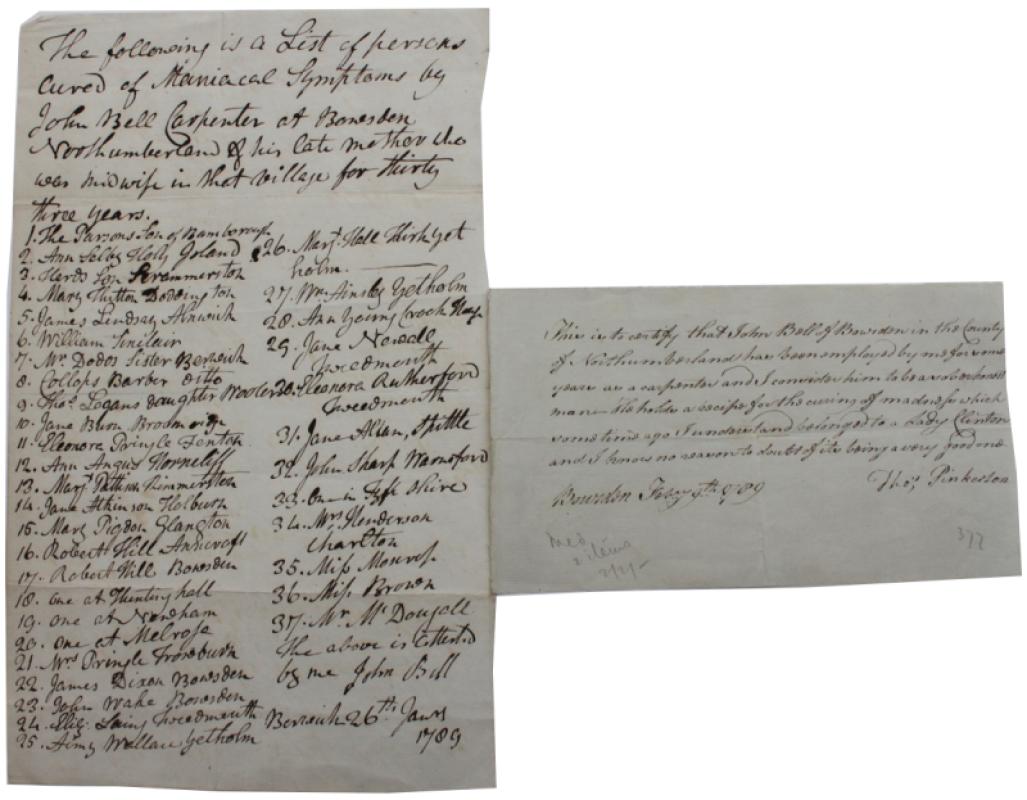 The following is a List of persons
cured of Maniacal Symptoms by
John Bell Carpenter at Bowsden
Northumberland & his late mother who
was midwife in that village for thirty
three years.
1. The Parsons Son of Bamborough
2. Ann Selby Holly Island
3. Herds Son Scrammerston
4. Mary Hutton Doddington
5. James Lindsay Alnwick
6. William Sinclair
7. Mr. Dodds Sister Berwick
8. Collops Barber ditto
9. Thos. Logans daughter Wooler
10. Jane Burn
11. Eleonora Pringle Fenton
12. Ann Angus Horncliff
13. Mary
14. Jane Atkinson Holburn
15. Mary Pigdon Glanton
16. Robert Hill Ancroft
17. Robert Hill Bowsden
18. One at Hunting hall
19. One at Norham
20. One at Melrose
21. Mrs Pringle
22. James Dixon Bowsden
23. John Wake Bowsden
24. Eliz. Laing Tweedmouth
25. Amy Wallace Yetholm
26. Mary Hall Kirk Yet
holm.
27. Wm Ainsly Yetholm
28. Ann Young Crook
29. Jane
Tweedmouth
30. Eleonora Rutherford
Tweedmouth
31. Jane Allan, Spittle
32. John Sharp Warnsford
33. One in Fyfe Shire
34. Mrs. Henderson
Charlton
35. Miss Moscrop
36. Miss Brown
37. Mr. Mc Dougall
The above is attested
by me John Bell
Berwick 26th Jany
1789
This is to certify that John Bell of Bowsden in the County
of Northumberland has been employed by me for some
years as a carpenter and I consider him to be a sober honest
man. He holds a recipe for the curing of madness which
some time ago I understand belonged to a Lady Clinton
and I know no reason to doubt of its being a very good one
Thos. Pinkerton
Bowsden
Med
2 items
2/2/-
377